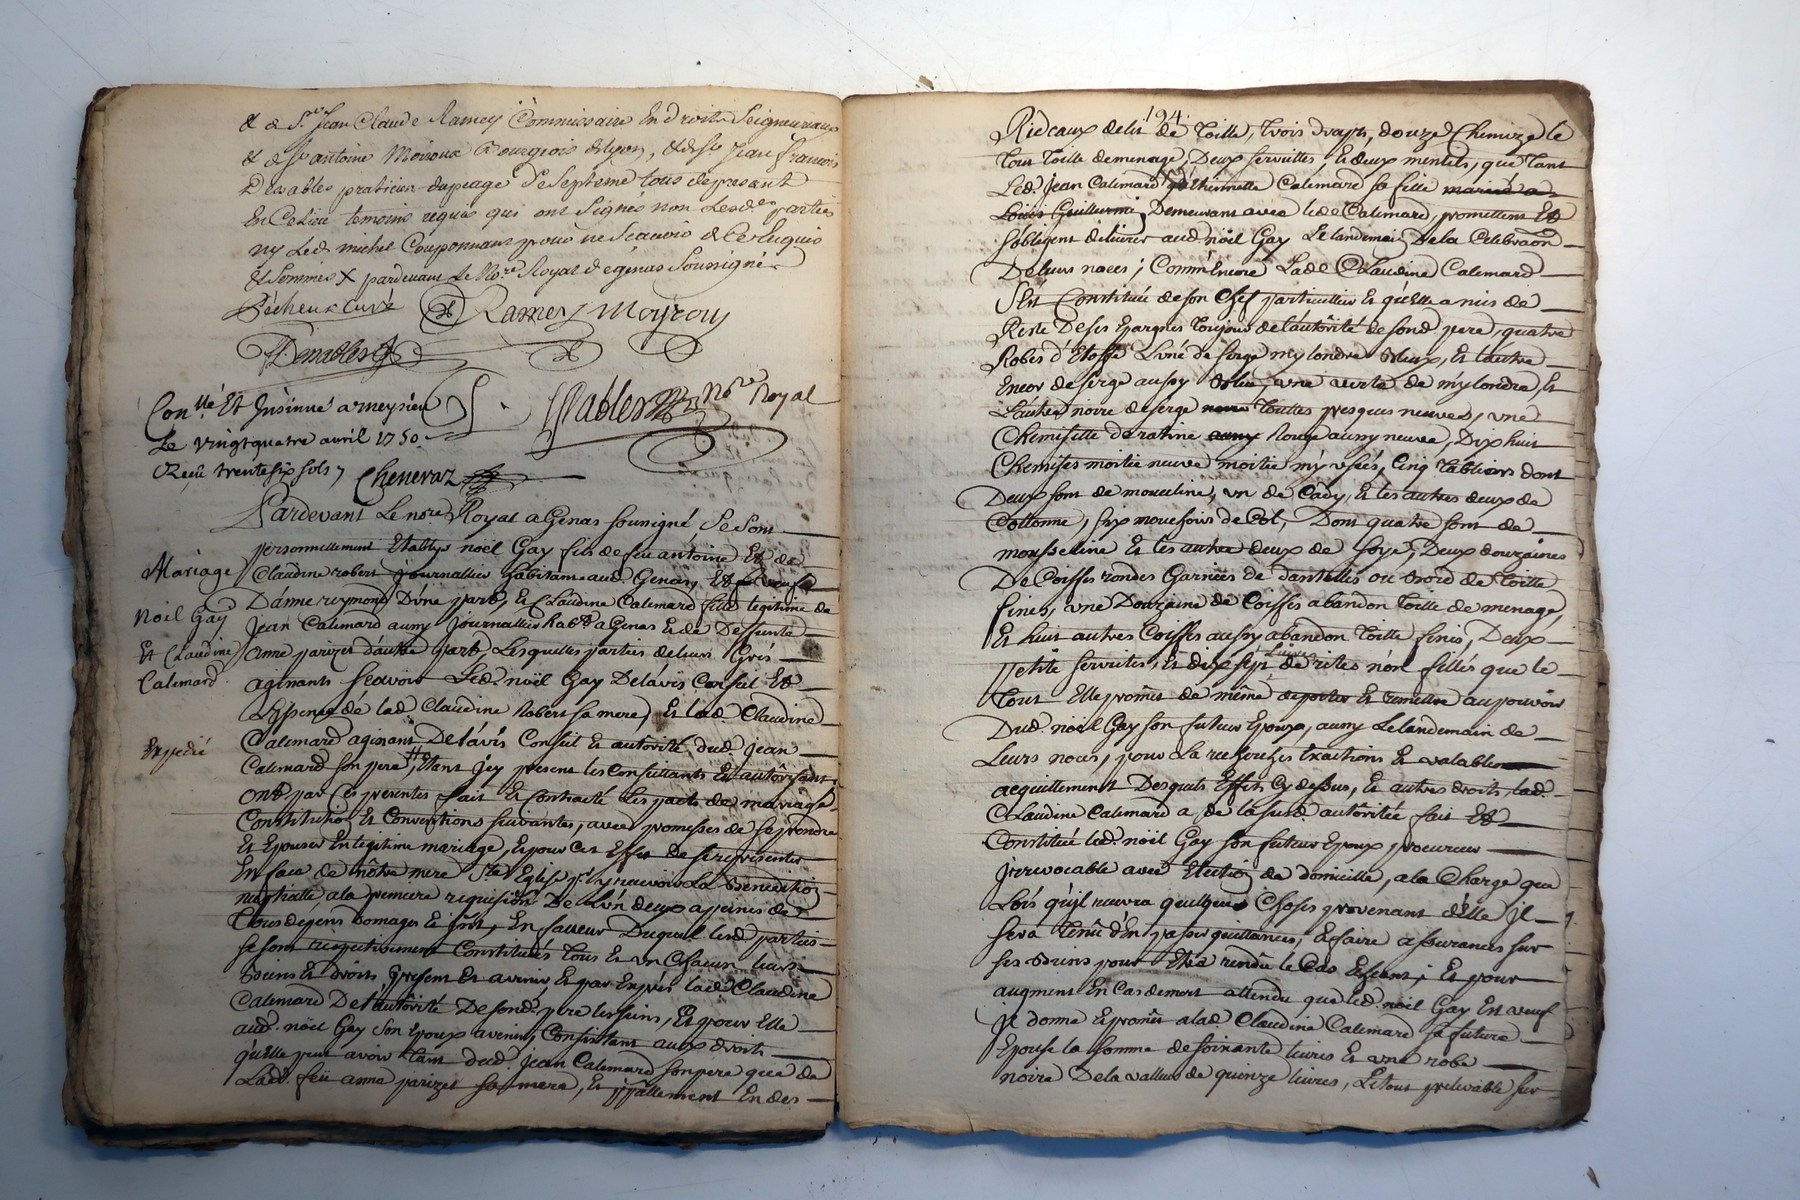 & de Sr. Jean Claude Ramey Commissaire En droits Seigneuriaux
& de Sr antoine Moiroux Bourgeois de lyon, & de Sr Jean francois
Desables praticien du peage de Septeme tous depresent
En Ce Lieu temoins requis qui ont Signés non Lesd. parties
ny Led. michel Couponnant pour ne Scavoir de Ce Requis
Et Sommés X pardevant Le No.re Royal de genas Soussigné
Pécheux Curé Ramey Moyroux
Desables
Desables No.re Royal
Con.llé Et Insinué a meysieu
Le vingtquatre avril 1750
Reçu trente six sols Cheneraz
Pardevant Le nore. Royal a Genas sousigné Se sont
personnellement Etablys noël Gay fils de feu antoine Et de
Mariage
Claudine robert journallier habitant aud. Genas, Et veuf
D'anne reymond D'une part, Et Claudine Calemard fille legitime de
Noël Gay
Jean Calemard aussy journallier hab.t a Genas Et de Deffunte
Et Claudine
anne parizet d'autre part, Lesquelles parties de leurs Grés
Calemard
agissants Scavoir Led. noël Gay De l'avis Conseil Et
de lad. Claudine Robert sa mere, Et lad. Claudine
Expedié
Calemard agissant De l'avis Conseil Et autorité dud. jean
Calemard son pere, Etant jcy present les Conseillants Et autôrisant
ont par Ces presentes fait Et Contracté Les pacts de mariage
Constitution Et Conventions suivantes, avec promesses de se prendre
Et Epouser En legitime mariage, Et pour Cet Effet De se representer
En face de nôtre mere Ste. Eglise pour y recevoir La Benediction
nuptialle, a la premiere requisition De L'un deux a peines de
tous depens Domages Et jnts, En faveur Duquel lesd. parties
se sont respectivement Constitués tous Et un Chacun leurs
biens Et droits present Et avenir, Et par Exprès lad. Claudine
Calemard De l'autôrité De sond. pere les siens, Et pour Elle
aud. noël Gay Son Epoux avenir Consistant aux droits
qu'elle peut avoir tant dud. jean Calemard son pere que de
Lad. feü anne parizet sa mere, Et En des
194.
Rideaux de lit de toille, trois draps, douze Chemize le
tout toille de menage, Deux serviettes, Et deux mentils, que tant
Led. jean Calemard qu'Ethiennette Calemard sa fille mariée a
Louis Guillermé, Demeurant avec led. Calemard, promettent Et
s'obligent de livrer aud. noël Gay Le landemain De la Celebraon
De leurs noces; Comm'Encore Lade. Claudine Calemard
S'Est Constituée de son Chef particullier Et qu'Elle a mis de
Reste De ses Epargnes toujours de l'autôrité de sond. pere, quatre
Robes d'Etoffe L'une de serge mylondre bleux, Et l'autre
Encor de serge aussy bleu, une verte de mylondre, Et
L'autre noire de serge toutes presques neuves, une
Chemisette de ratine Rouge aussy neuve, Dix huit
Chemises moitie neuve moitie my usées, Cinq tabliers dont
Deux sont de mouceline, un de Cady, Et les autres deux de
Cottonne, six mouchoirs de Col, Dont quatre sont de
mousseline Et les autre deux de soye, Deux douzaines
De Coiffes rondes Garnies de dantelles ou bord de toille
fines, une Douzaine de Coiffes abandon toille de menage,
Et huit autres Coiffes aussy abandon toille fines, Deux
petite serviettes, Et dix sept Livres de rites non fillés que le
tout Elle promet de même de porter Et remettre au pouvoir
Dud. noël Gay son futur Epoux, aussy Le landemain de
Leurs noces, pour La recherches Exactions Et valables
acquittement Desquels Effets Cy dessus, Et autres droits, lad.
Claudine Calemard a De la susd. autôritée fait Et
Constitué led. noël Gay son futur Epoux procureur
jrrevocable avec Election de domicille, a la Charge que
Lors qu'jl recevra quelques Choses provenant d'Elle jl
sera tenu d'En passer quittances, Et faire assurances sur
ses biens pour Etre rendu le Cas Echeant; Et pour
augment En Cas de mort attendu que led. noël Gay Est veuf
jl donne Et promet a lad. Claudine Calemard sa future
Epouse la somme de soixante livres Et une robe
noire De la valleur de quinze livres, Le tout prelevable sur